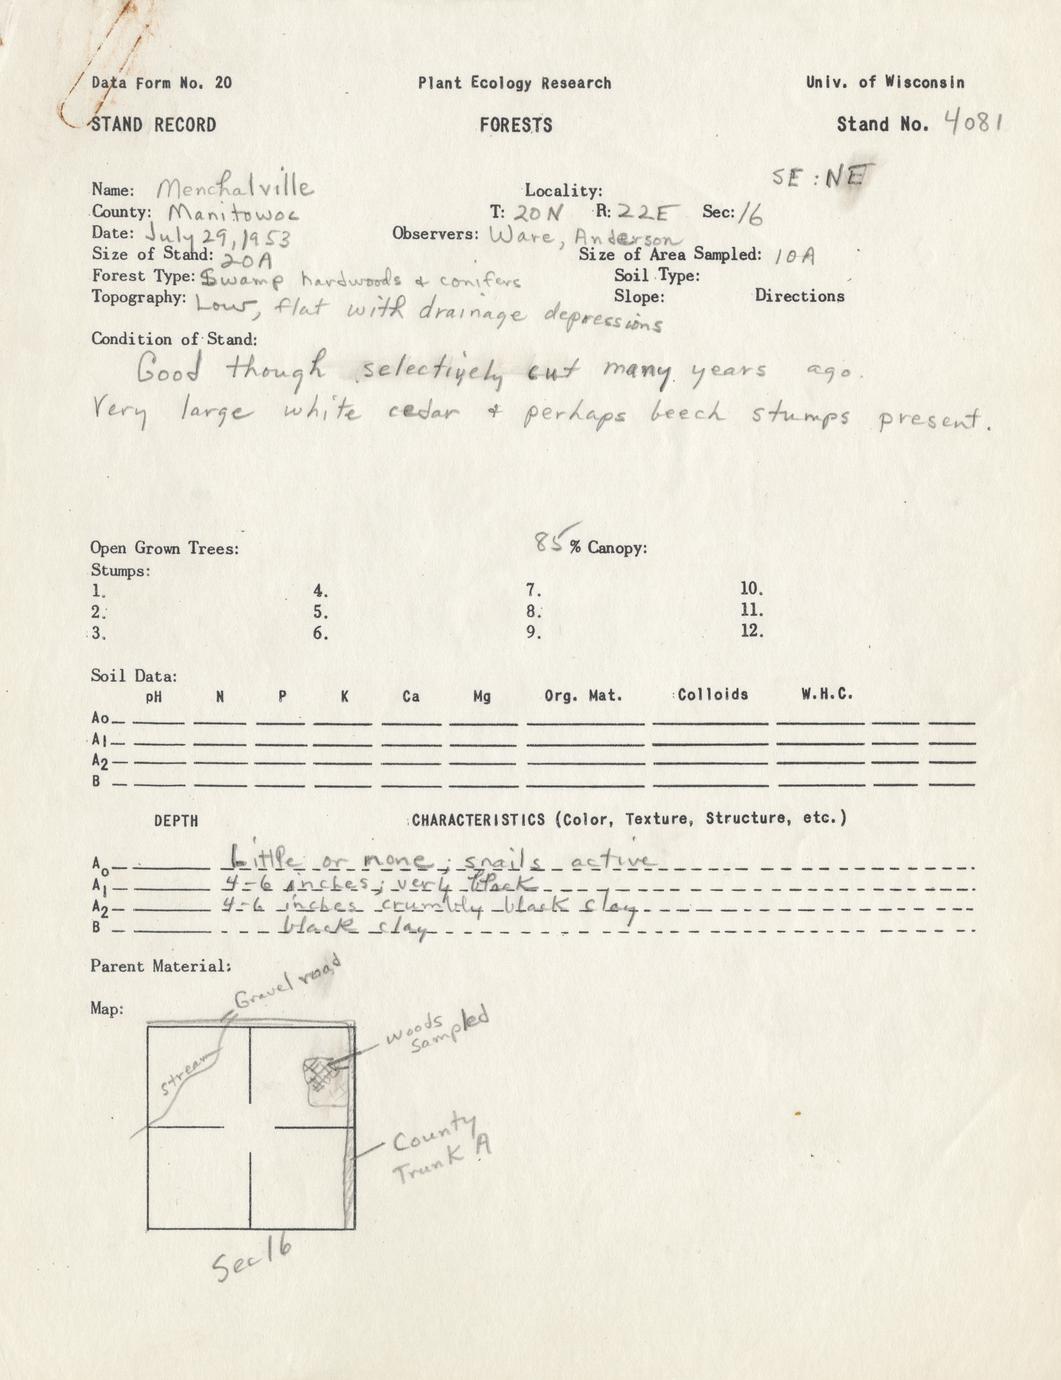 Data Form No. 20 Plant Ecology Research Univ. of Wisconsin
STAND RECORD FORESTS Stand No. 4081
SE:NE
Name: Menchalville Locality:
County: Manitowoc T: 20N R: 22E Sec: 16
Date: July 29, 1953 Observers: Ware, Anderson
Size of Stand: 20A Size of Area Sampled: 10A
Forest Type: Swamp hardwoods & conifers Soil Type:
Topography: Low, flat with drainage depressions Slope: Directions
Condition of Stand:
Good though selectively cut many years ago.
Very large white cedar & perhaps beech stumps present.
Open Grown Trees: 85 % Canopy:
Stumps:
1. 4. 7. 10.
2. 5. 8. 11.
3. 6. 9. 12.
Soil Data:
pH N P K Ca Mg Org. Mat. Colloids W.H.C.
Ao
A1
A2
B
DEPTH CHARACTERISTICS (Color, Texture, Structure, etc.)
Ao Little or none; snails active
A1 4-6 inches; very black
A2 4-6 inches crumbly black clay
B black clay
Parent Material:
Map:
Gravel road
woods
sampled
stream
County
Trunk A
Sec 16